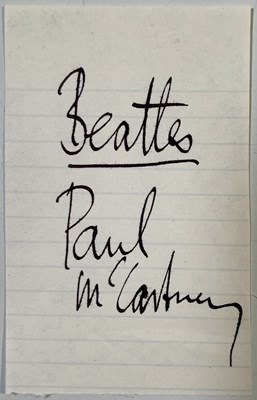 Beatles
Paul
McCartney